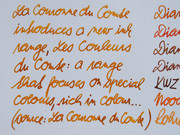 La Couronne du Comte
introduces a new ink
range, Les Couleurs
du Comte: a range
that focuses on special
colours, rich in colour...
(source: La Couronne du Comte)
Diam
Diam
Diam
Diam
KWZ
Nood